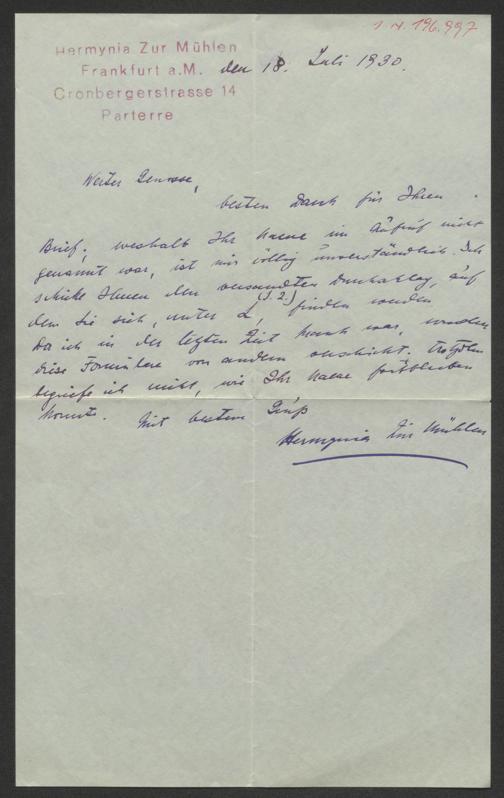 J. N. 196.997
Hermynia Zur Mühlen
Frankfurt a.M. den 18. Juli 1930.
Cronbergerstrasse 14
Parterre
Werter Genosse,
besten Dank für Ihren
Brief; weshalb Ihr Name im Aufruf nicht
genannt war, ist mir völlig unverständlich. Ich
schicke Ihnen den versandten Durchschlag, auf
dem Sie sich, unter L, (S. 2.) finden werden
Da ich in der letzten Zeit krank war, wurden
diese Formulare von andern verschickt. Trotzdem
begreife ich nicht, wie Ihr Name fortbleiben
konnte. Mit bestem Gruß
Hermynia Zur Mühlen